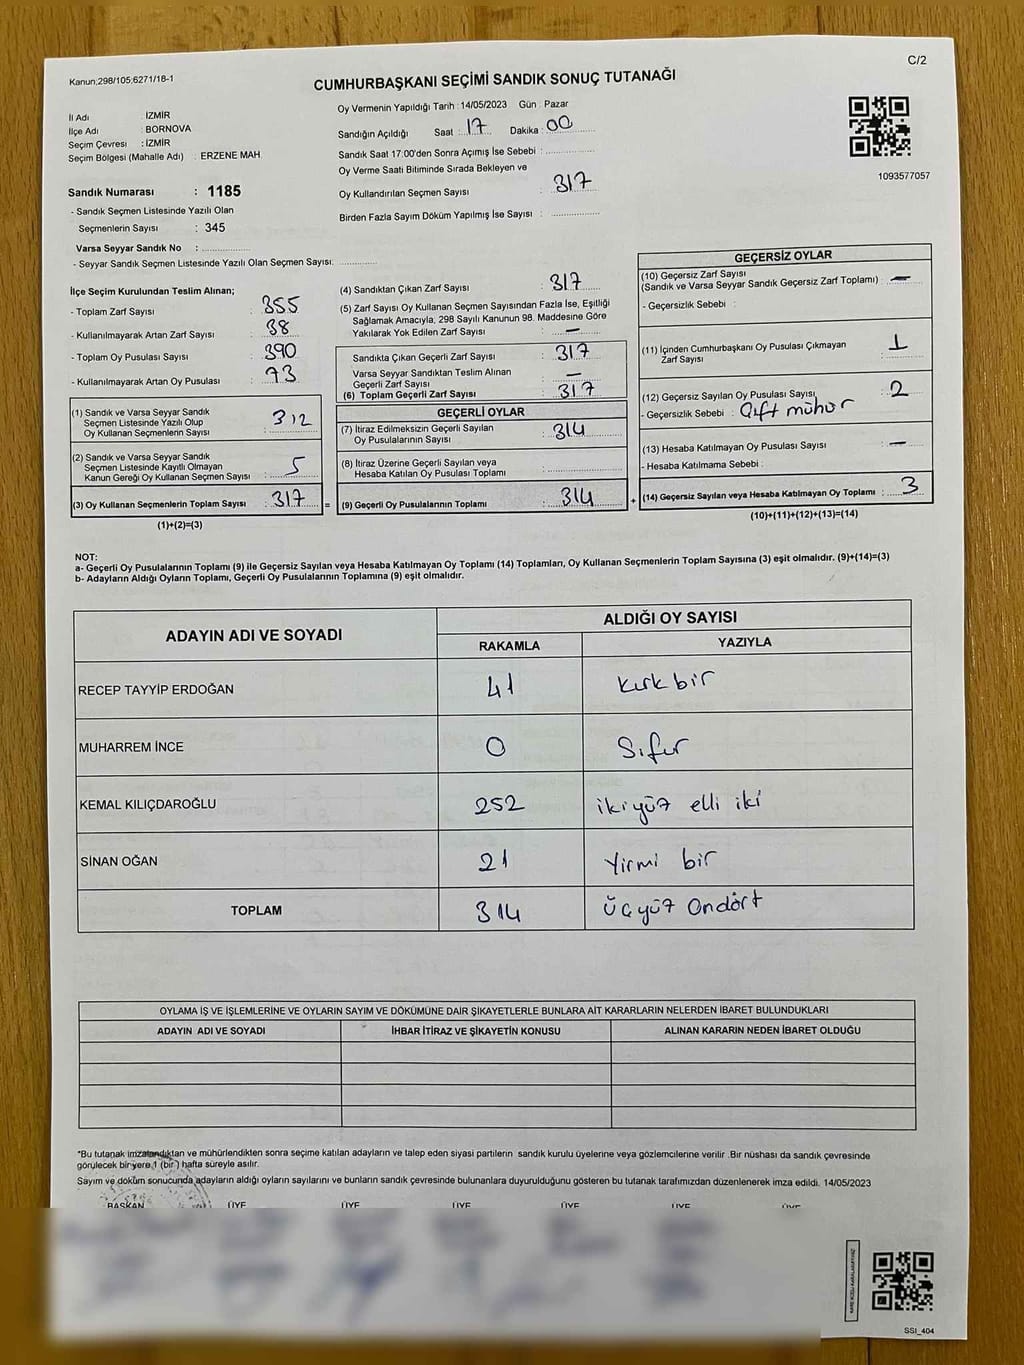 Kanun;298/105;6271/18-1
C/2
CUMHURBAŞKANI SEÇİMİ SANDIK SONUÇ TUTANAĞI
İl Adı : İZMİR
İlçe Adı : BORNOVA
Seçim Çevresi : İZMİR
Seçim Bölgesi (Mahalle Adı) : ERZENE MAH.
Sandık Numarası : 1185
- Sandık Seçmen Listesinde Yazılı Olan
Seçmenlerin Sayısı : 345
Varsa Seyyar Sandık No :
- Seyyar Sandık Seçmen Listesinde Yazılı Olan Seçmen Sayısı:
Oy Vermenin Yapıldığı Tarih : 14/05/2023 Gün : Pazar
Sandığın Açıldığı Saat : 17 Dakika : 00
Sandık Saat 17:00'den Sonra Açımış İse Sebebi :
Oy Verme Saati Bitiminde Sırada Bekleyen ve
Oy Kullandırılan Seçmen Sayısı : 317
Birden Fazla Sayım Döküm Yapılmış İse Sayısı :
1093577057
İlçe Seçim Kurulundan Teslim Alınan;
- Toplam Zarf Sayısı : 355
- Kullanılmayarak Artan Zarf Sayısı : 38
- Toplam Oy Pusulası Sayısı : 390
- Kullanılmayarak Artan Oy Pusulası : 73
(1) Sandık ve Varsa Seyyar Sandık
Seçmen Listesinde Yazılı Olup
Oy Kullanan Seçmenlerin Sayısı : 312
(2) Sandık ve Varsa Seyyar Sandık
Seçmen Listesinde Kayıtlı Olmayan
Kanun Gereği Oy Kullanan Seçmen Sayısı : 5
(3) Oy Kullanan Seçmenlerin Toplam Sayısı : 317 =
(1)+(2)=(3)
(4) Sandıktan Çıkan Zarf Sayısı : 317
(5) Zarf Sayısı Oy Kullanan Seçmen Sayısından Fazla İse, Eşitliği
Sağlamak Amacıyla; 298 Sayılı Kanunun 98. Maddesine Göre
Yakılarak Yok Edilen Zarf Sayısı : —
Sandıkta Çıkan Geçerli Zarf Sayısı : 317
Varsa Seyyar Sandıktan Teslim Alınan
Geçerli Zarf Sayısı : —
(6) Toplam Geçerli Zarf Sayısı : 317
GEÇERLİ OYLAR
(7) İtiraz Edilmeksizin Geçerli Sayılan
Oy Pusulalarının Sayısı : 314
(8) İtiraz Üzerine Geçerli Sayılan veya
Hesaba Katılan Oy Pusulası Toplamı :
(9) Geçerli Oy Pusulalarının Toplamı : 314 +
GEÇERSİZ OYLAR
(10) Geçersiz Zarf Sayısı
(Sandık ve Varsa Seyyar Sandık Geçersiz Zarf Toplamı) : —
- Geçersizlik Sebebi :
(11) İçinden Cumhurbaşkanı Oy Pusulası Çıkmayan
Zarf Sayısı : 1
(12) Geçersiz Sayılan Oy Pusulası Sayısı : 2
- Geçersizlik Sebebi : Çift mühür
(13) Hesaba Katılmayan Oy Pusulası Sayısı : —
- Hesaba Katılmama Sebebi :
(14) Geçersiz Sayılan veya Hesaba Katılmayan Oy Toplamı : 3
(10)+(11)+(12)+(13)=(14)
NOT:
a- Geçerli Oy Pusulalarının Toplamı (9) ile Geçersiz Sayılan veya Hesaba Katılmayan Oy Toplamı (14) Toplamları, Oy Kullanan Seçmenlerin Toplam Sayısına (3) eşit olmalıdır. (9)+(14)=(3)
b- Adayların Aldığı Oyların Toplamı, Geçerli Oy Pusulalarının Toplamına (9) eşit olmalıdır.
ADAYIN ADI VE SOYADI
ALDIĞI OY SAYISI
RAKAMLA YAZIYLA
RECEP TAYYİP ERDOĞAN 41 kırk bir
MUHARREM İNCE 0 Sıfır
KEMAL KILIÇDAROĞLU 252 ikiyüz elli iki
SİNAN OĞAN 21 Yirmi bir
TOPLAM 314 Üçyüz Ondört
OYLAMA İŞ VE İŞLEMLERİNE VE OYLARIN SAYIM VE DÖKÜMÜNE DAİR ŞİKAYETLERLE BUNLARA AİT KARARLARIN NELERDEN İBARET BULUNDUKLARI
ADAYIN ADI VE SOYADI İHBAR İTİRAZ VE ŞİKAYETİN KONUSU ALINAN KARARIN NEDEN İBARET OLDUĞU
*Bu tutanak imzalandıktan ve mühürlendikten sonra seçime katılan adayların ve talep eden siyasi partilerin sandık kurulu üyelerine veya gözlemcilerine verilir .Bir nüshası da sandık çevresinde
görülecek bir yere 1 (bir) hafta süreyle asılır.
Sayım ve döküm sonucunda adayların aldığı oyların sayılarını ve bunların sandık çevresinde bulunanlara duyurulduğunu gösteren bu tutanak tarafımızdan düzenlenerek imza edildi. 14/05/2023
BAŞKAN ÜYE ÜYE ÜYE ÜYE ÜYE ÜYE
SSİ_404